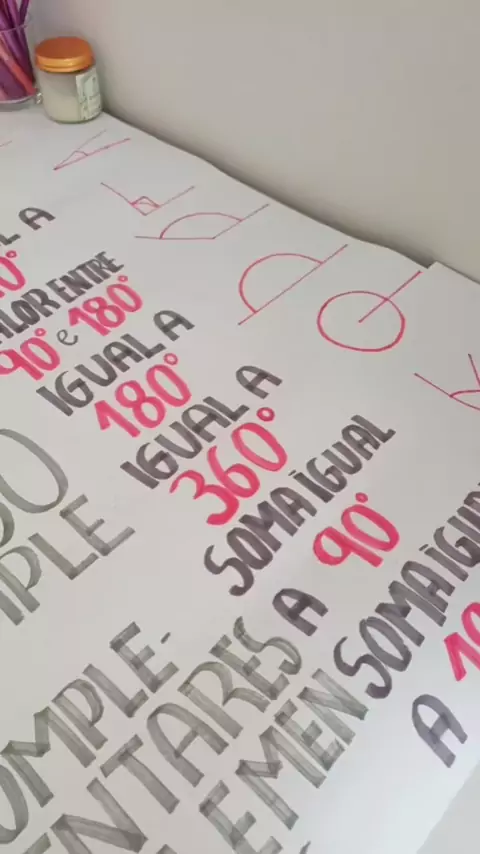 L A
0°
ALOR ENTRE
90° e 180°
IGUAL A
180°
IGUAL A
360°
MPLE
SOMA IGUAL
A 90°
OMPLE-
NTARES
SOMA IGUA
A 1
LEMEN